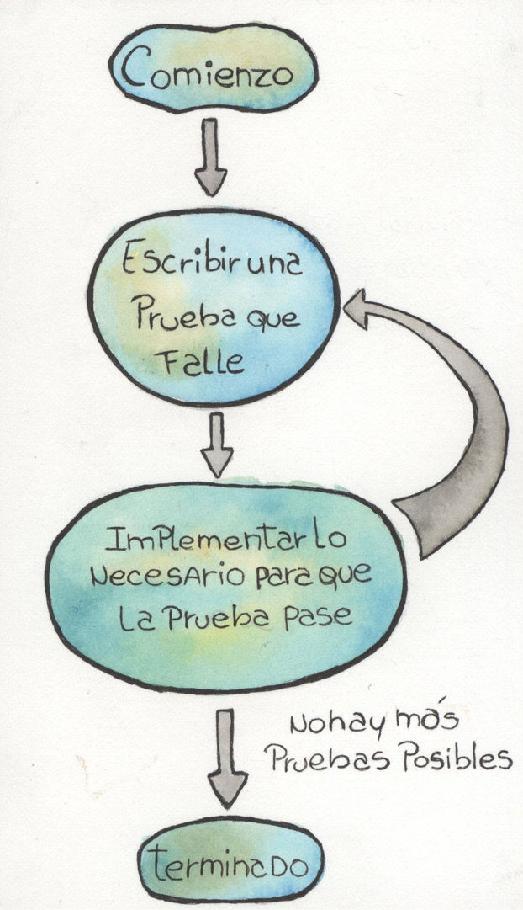 Comienzo
Escribir una
Prueba que
Falle
Implementar lo
Necesario para que
La Prueba pase
No hay más
Pruebas Posibles
terminado